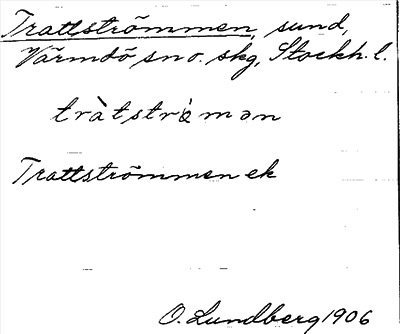 Trattströmmen, sund,
Värmdö sn o. skg, Stockh. l.
tràtstrø̀mən
Trattströmmen ek
O. Lundberg 1906